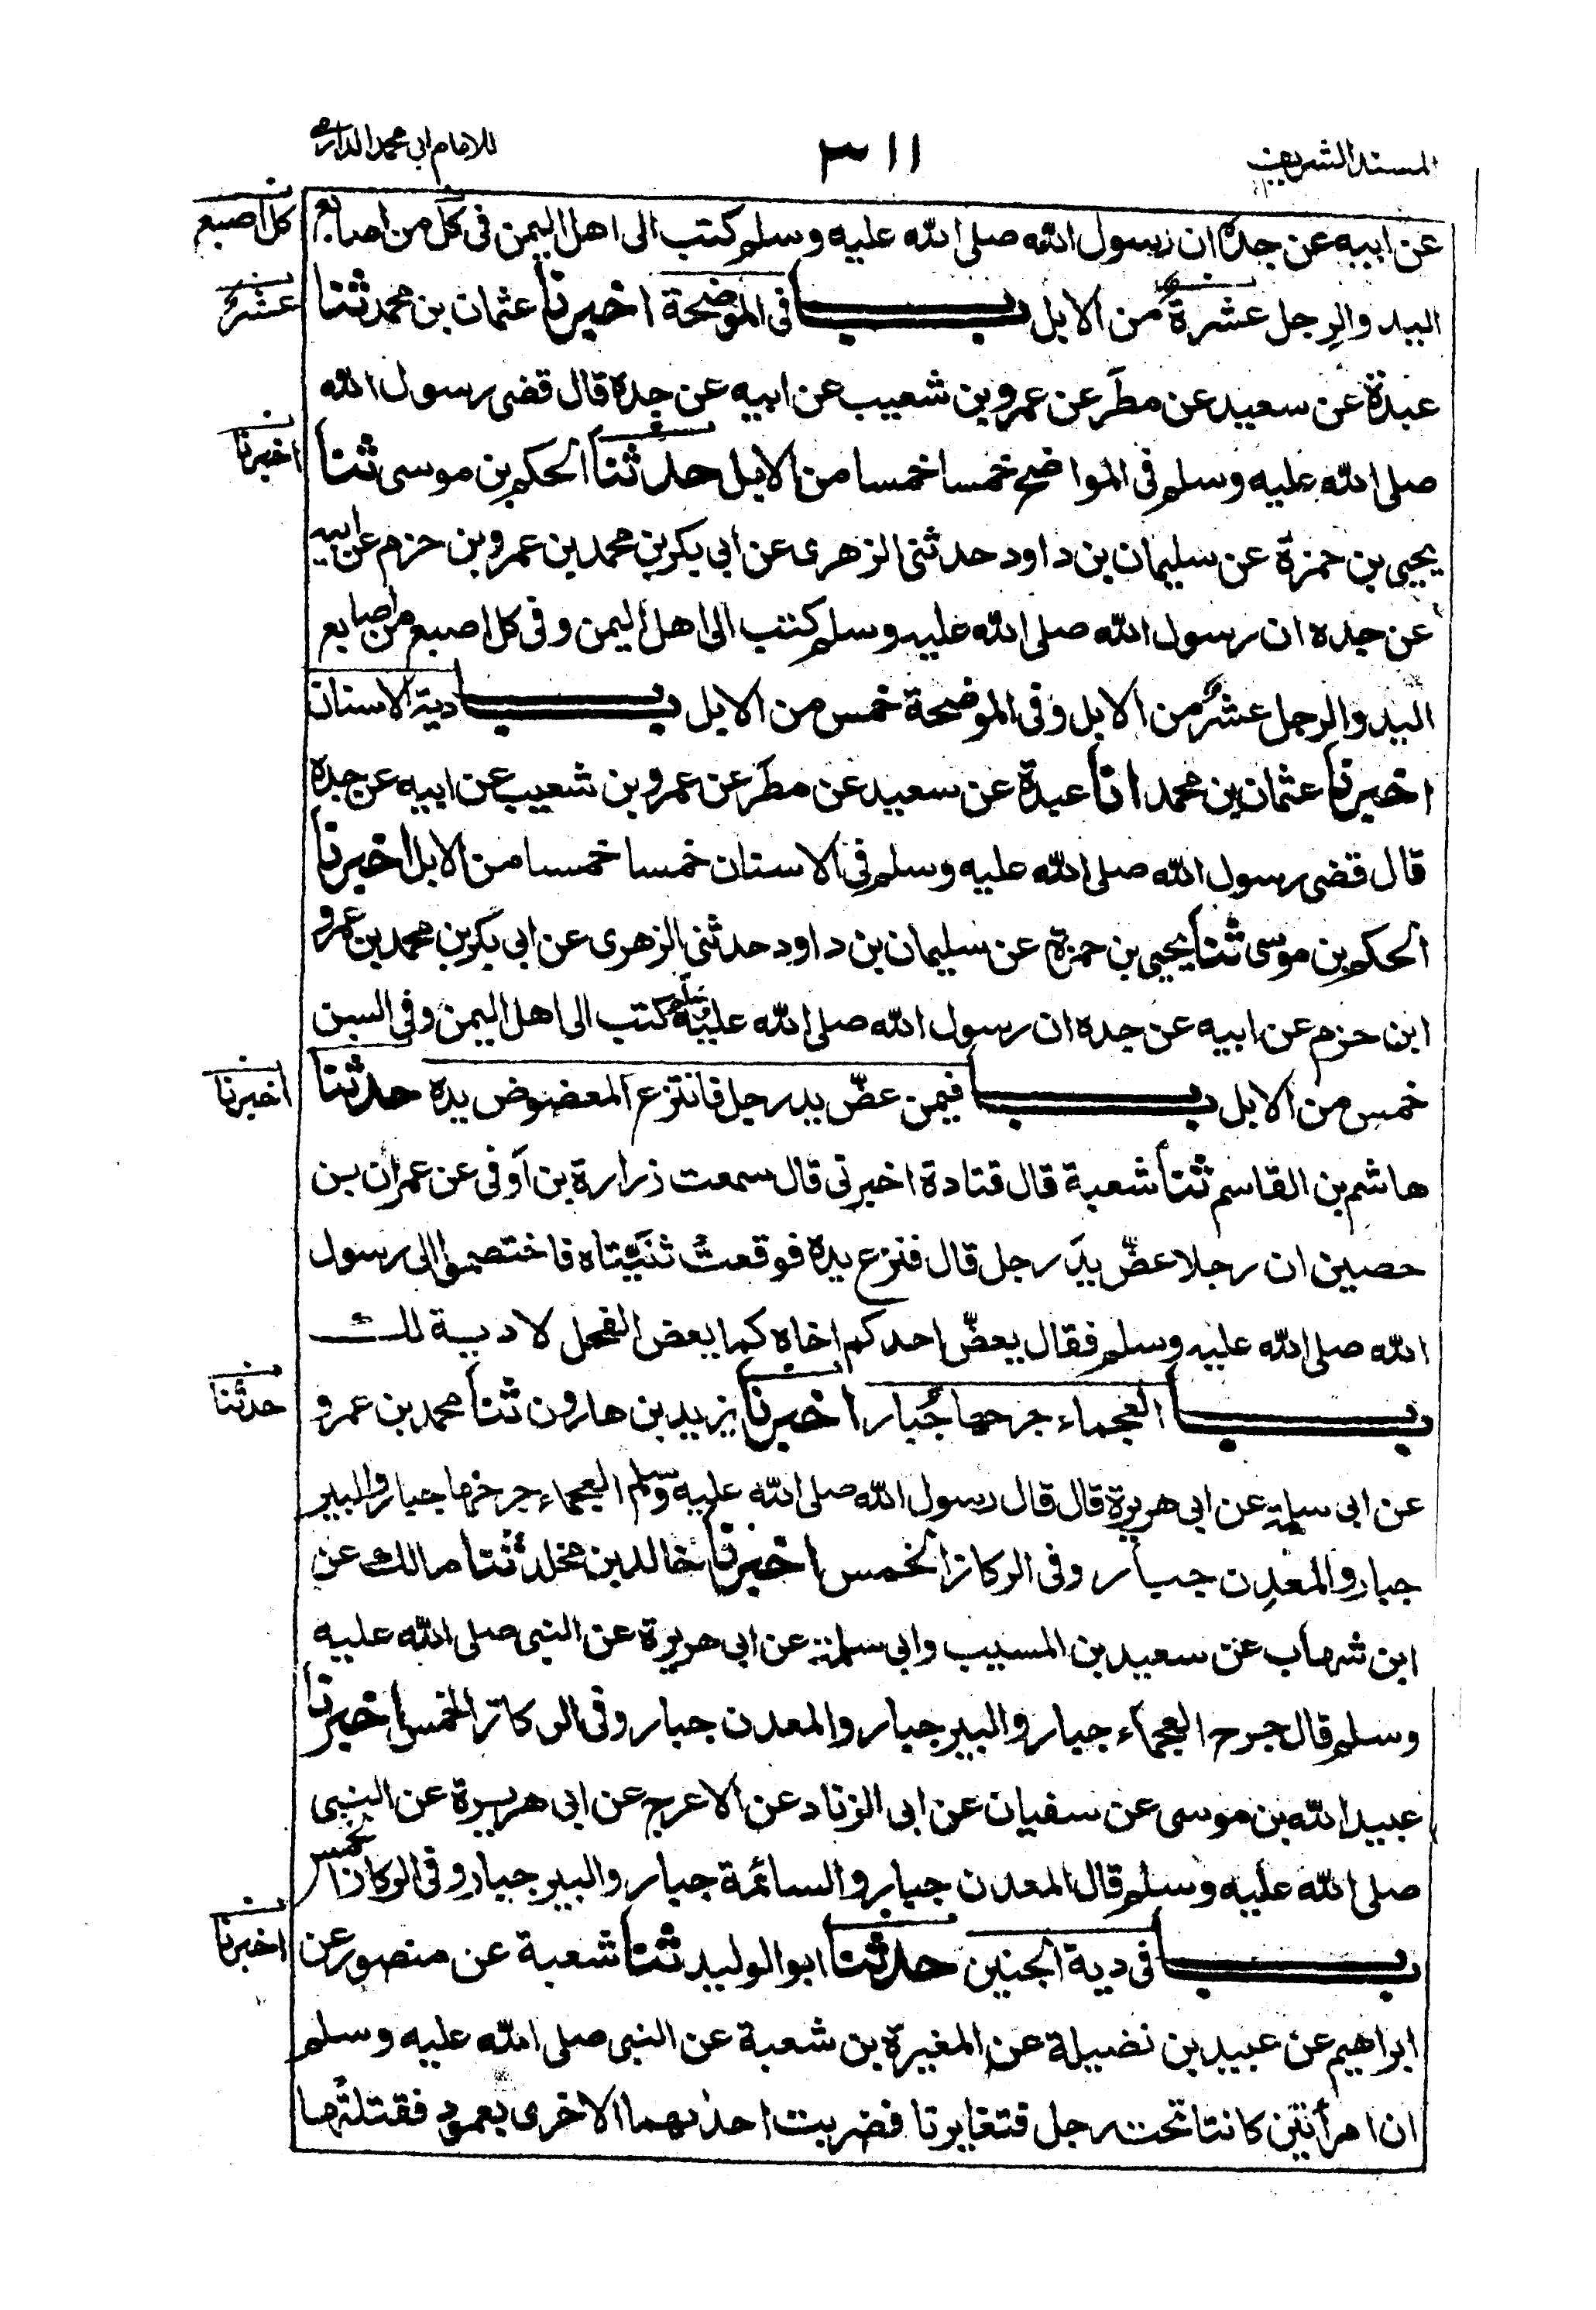 المسند الشريف ٣١١ للامام ابي محمد الدارمي
عن ابيه عن جده ان رسول الله صلى الله عليه وسلم كتب الى اهل اليمن فى كل من اصابع
كل اصبع
اليد والرجل عشرة من الابل باب فى الموضحة اخبرنا عثمان بن محمد ثنا
عشر
عبدة عن سعيد عن مطر عن عمرو بن شعيب عن ابيه عن جده قال قضى رسول الله
صلى الله عليه وسلم فى المواضح خمسا خمسا من الابل حدثنا الحكم بن موسى ثنا
اخبرنا
يحيى بن حمزة عن سليمان بن داود حدثنى الزهرى عن ابى بكر بن محمد بن عمرو بن حزم عن ابيه
عن جده ان رسول الله صلى الله عليه وسلم كتب الى اهل اليمن وفى كل اصبع من اصابع
اليد والرجل عشر من الابل وفى الموضحة خمس من الابل باب دية الاسنان
اخبرنا عثمان بن محمد انا عبدة عن سعيد عن مطر عن عمرو بن شعيب عن ابيه عن جده
قال قضى رسول الله صلى الله عليه وسلم فى الاسنان خمسا خمسا من الابل اخبرنا
الحكم بن موسى ثنا يحيى بن حمزة عن سليمان بن داود حدثنى الزهرى عن ابى بكر بن محمد بن عمرو
ابن حزم عن ابيه عن جده ان رسول الله صلى الله عليه وسلم كتب الى اهل اليمن وفى السن
خمس من الابل باب فيمن عضّ يد رجل فانتزع المعضوض يده حدثنا
اخبرنا
هاشم بن القاسم ثنا شعبة قال قتادة اخبرنى قال سمعت زرارة بن اَوفى عن عمران بن
حصين ان رجلا عضّ يدَ رجل قال فنزع يده فوقعت ثنيتاه فاختصموا الى رسول
الله صلى الله عليه وسلم فقال يعضّ احدكم اخاه كما يعض الفحل لا دية لك
باب العجماء جرحها جُبار اخبرنا يزيد بن هارون ثنا محمد بن عمرو
حدثنا
عن ابى سلمة عن ابى هريرة قال قال رسول الله صلى الله عليه وسلم العجماء جرحها جبار والبير
جبار والمعدِن جبار وفى الركاز الخمس اخبرنا خالد بن مخلد ثنا مالك عن
ابن شهاب عن سعيد بن المسيب وابى سلمة عن ابى هريرة عن النبى صلى الله عليه
وسلم قال جرح العجماء جبار والبير جبار والمعدن جبار وفى الركاز الخمس اخبرنا
عبيد الله بن موسى عن سفيان عن ابى الزناد عن الاعرج عن ابى هريرة عن النبى
صلى الله عليه وسلم قال المعدن جبار والسائمة جبار والبير جبار وفى الركاز الخمس
باب فى دية الجنين حدثنا ابو الوليد ثنا شعبة عن منصور عن
اخبرنا
ابراهيم عن عبيد بن نضيلة عن المغيرة بن شعبة عن النبى صلى الله عليه وسلم
ان امرأتين كانتا تحت رجل فتغايرتا فضربت احدٰىهما الاخرى بعمود فقتلتها